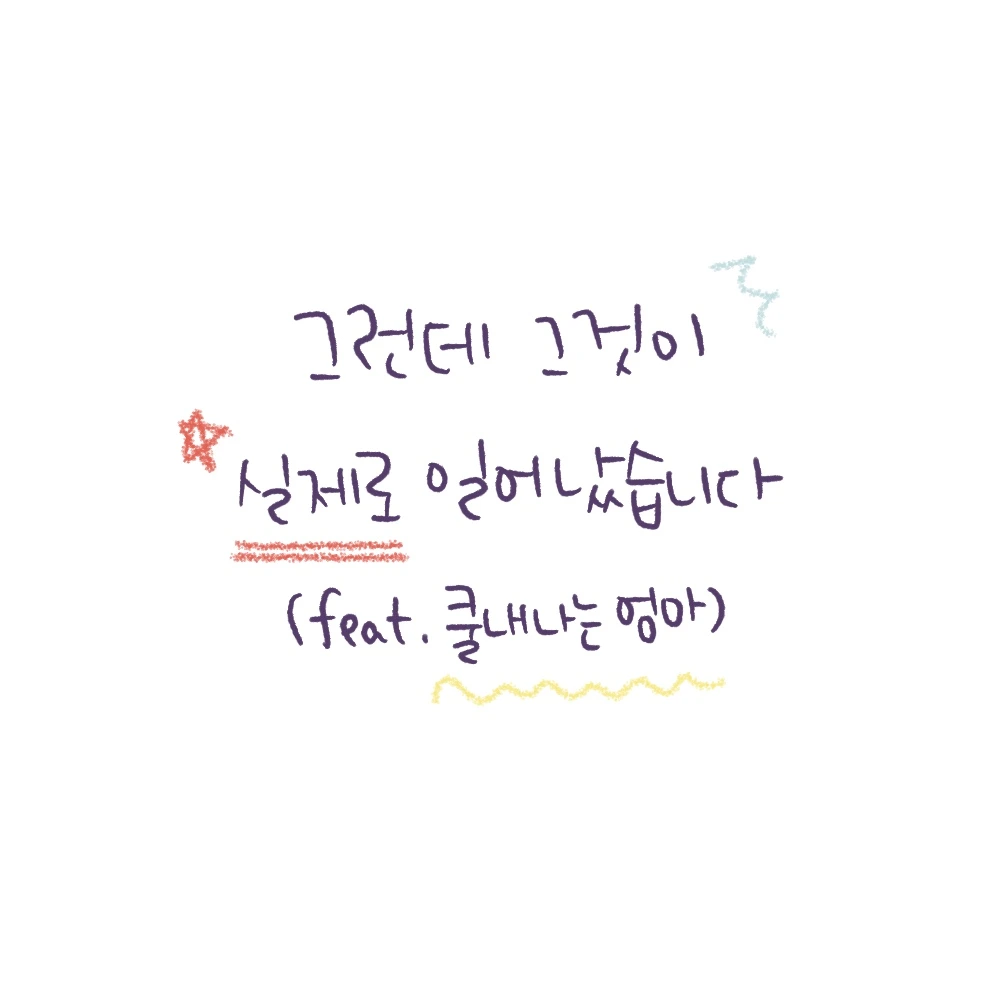 그런데 그것이
실제로 일어났습니다
(feat. 쿨내나는 엄마)